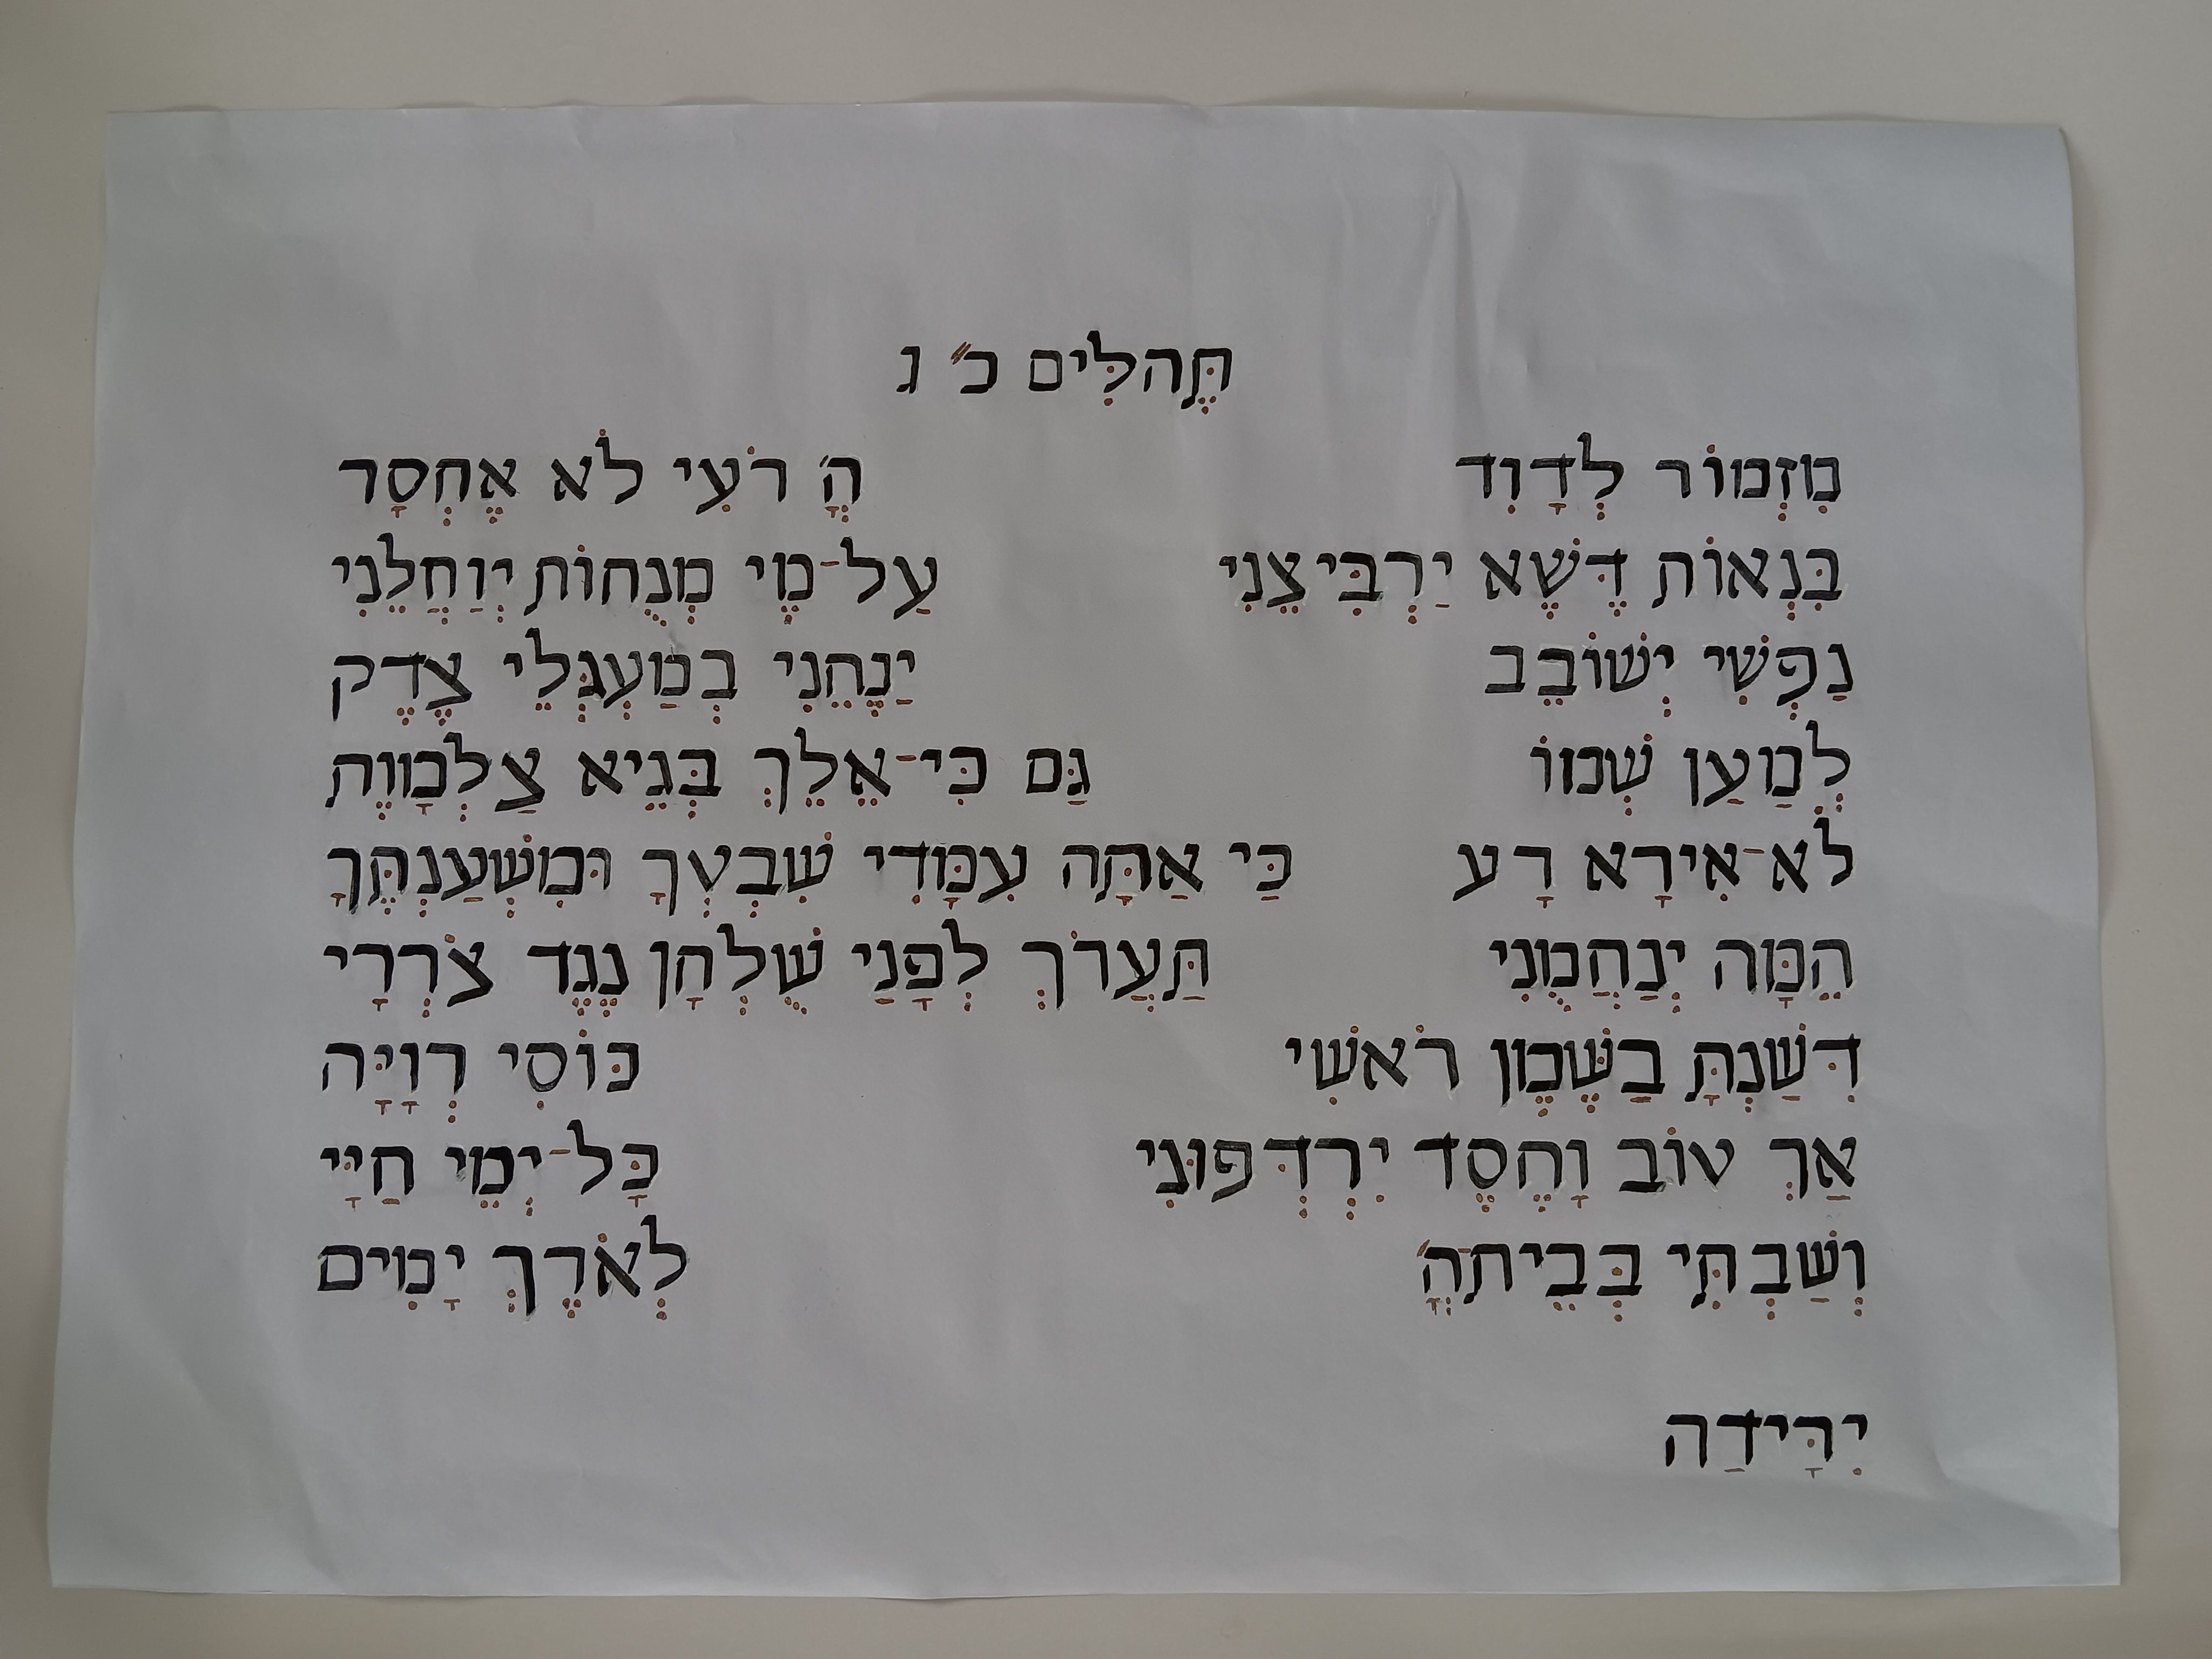 תֶּהלִּים כ״ג
מִזְמוֹר לְדָוִד הֳ׳ רֹעִי לֹא אֶחְסָר
בִּנְאוֹת דֶּשֶׁא יַרְבִּיצֵנִי עַל־מֶי מְנֻחוֹת יְוַחֲלֵנִי
נַפְשִׁי יְשׁוֹבֵב יַנְֶחֵנִי בְמַעְגְּלֵי צֶדֶק
לְמַעַן שְׁמוֹ גַּם כִּי־אֵלֵךְ בְּגֵיא צַלְמָוֶת
לֹא־אִירָא רָע כַּי אַתָּה עִמָּדִי שִׁבְטְךָ וּמִשְׁעַנְתֶּךָ
הֵמָּה יְנַחֲמֻנִי תַּעֲרֹךְ לְפָנַי שֻׁלְחָן נֶגֶד צֹרְרָי
דִּשַּׁנְתָּ בַשֶּׁמֶן רֹאשִׁי כּוֹסִי רְוָיָּה
אַךְ טוֹב וָחֶסֶד יִרְדְּפוּנִי כָּל־יְמֵי חַיָּי
וְשַׁבְתִּי בְּבֵית־הֳ׳ לְאֹרֶךְ יָמִים
יִרָּידַה